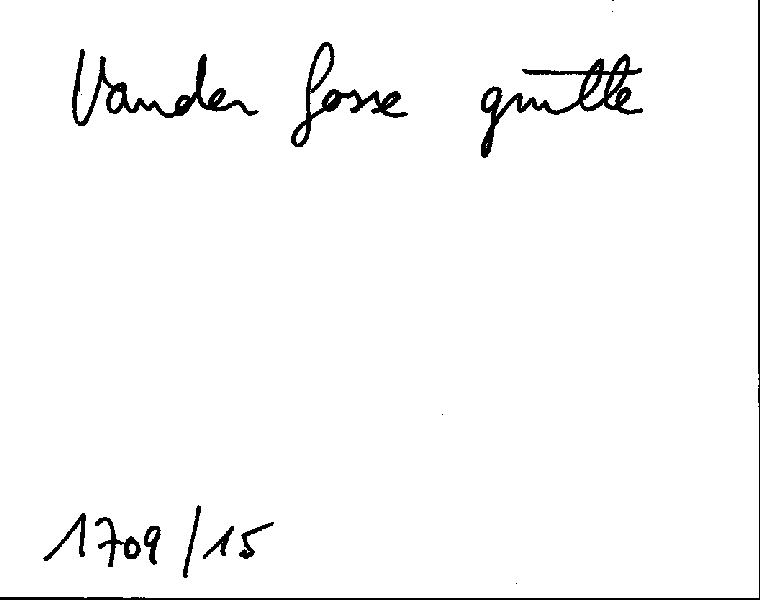 Vander fosse guitte
1709/15